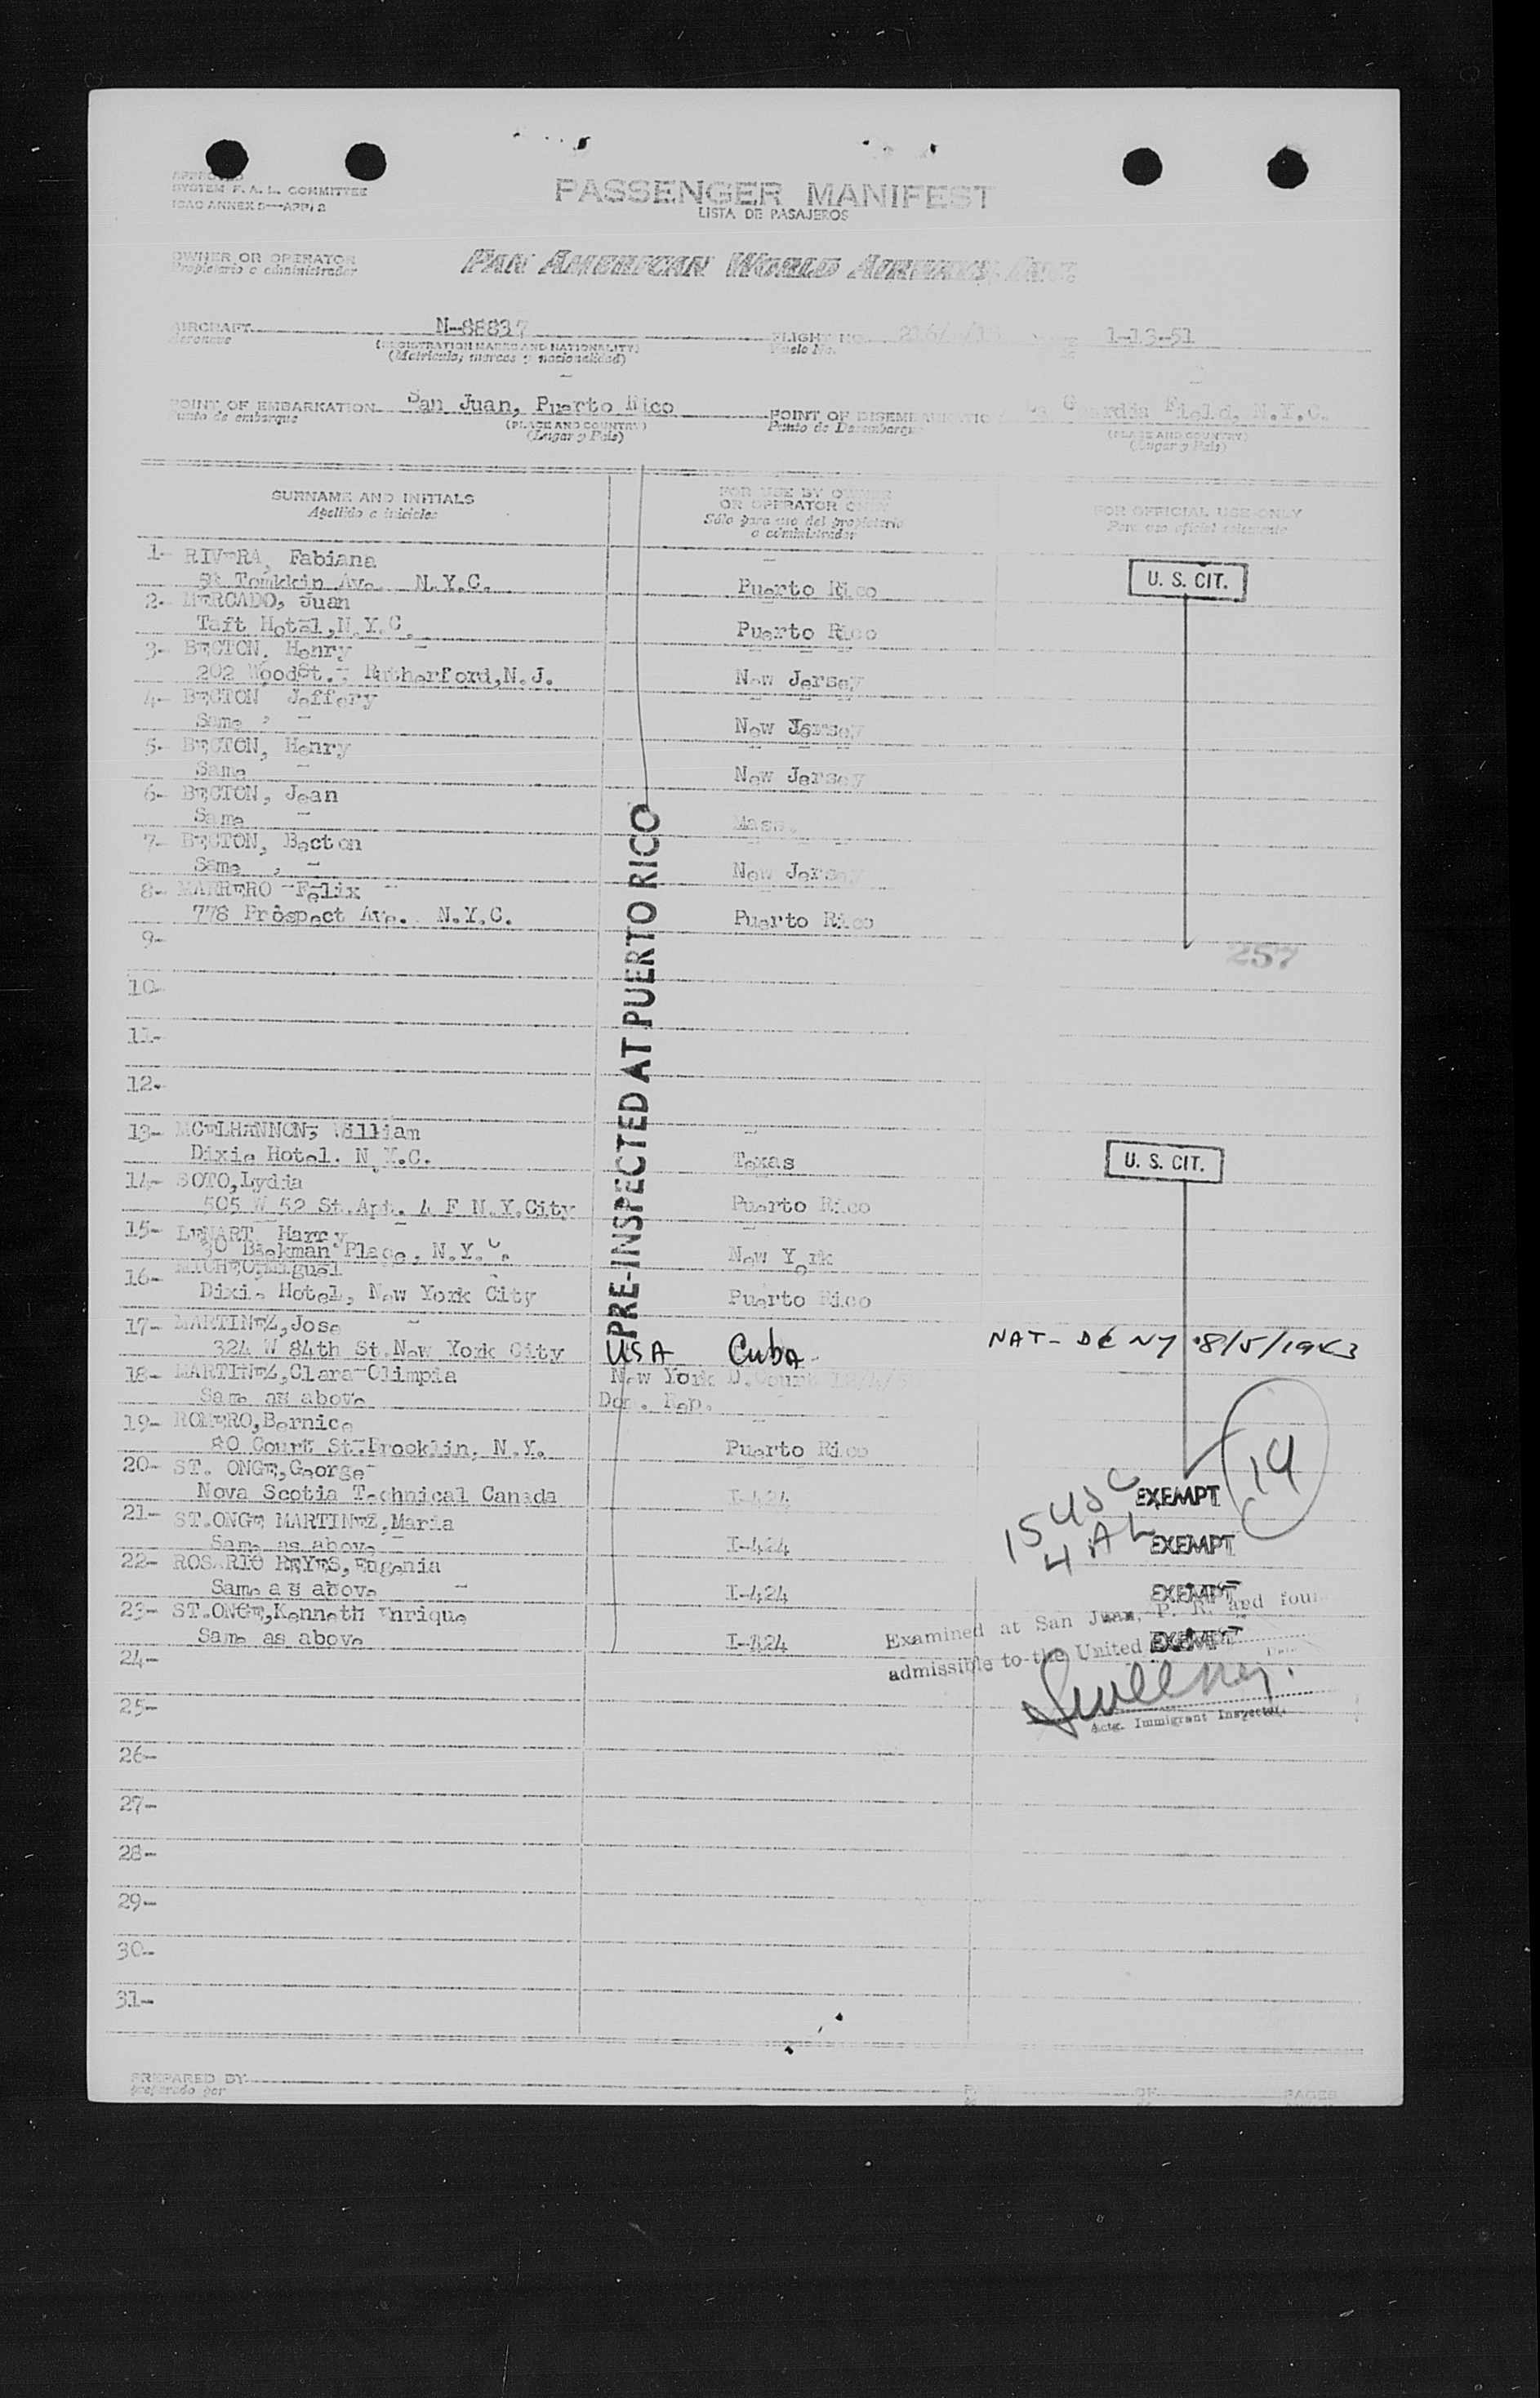 APPROVED
SYSTEM F. A. L. COMMITTEE
ICAO ANNEX 9—APP. 2
PASSENGER MANIFEST
LISTA DE PASAJEROS
OWNER OR OPERATOR
Propietario o administrador
PAN AMERICAN WORLD AIRWAYS, INC.
AIRCRAFT N-88837 FLIGHT NO. 1-13-51
Aeronave (REGISTRATION MARKS AND NATIONALITY) Vuelo No.
(Matricula, marcas y nacionalidad)
POINT OF EMBARKATION San Juan, Puerto Rico POINT OF DISEMBARKATION La Guardia Field, N.Y.C.
Punto de embarque (PLACE AND COUNTRY) Punto de Desembarque (PLACE AND COUNTRY)
(Lugar y Pais) (Lugar y Pais)
SURNAME AND INITIALS FOR USE BY OWNER
Apellido e iniciales OR OPERATOR ONLY FOR OFFICIAL USE ONLY
Sólo para uso del propietario Para uso oficial solamente
o administrador
1- RIVERA, Fabiana
Tomkkin Ave. N.Y.C. Puerto Rico U. S. CIT.
2- MERCADO, Juan
Taft Hotel, N.Y.C. Puerto Rico
3- BECTON, Henry
202 WoodSt. - Rutherford, N.J. New Jersey
4- BECTON Jeffery
Same , - New Jersey
5- BECTON, Henry
Same - New Jersey
6- BECTON, Jean
Same - Mass.
7- BECTON, Becton
Same , - New Jersey
8- MARRERO Felix
778 Prospect Ave. N.Y.C. Puerto Rico
9- 257
10-
11-
12-
PRE-INSPECTED AT PUERTO RICO
13- MCELHANNON, William
Dixie Hotel. N.Y.C. Texas U. S. CIT.
14- SOTO,Lydia
505 W 52 St.Apt. 4 F N.Y.City Puerto Rico
15- LENART Harry
30 Beekman Place, N.Y.C. New York
16- MICHEO,Miguel
Dixie Hotel, New York City Puerto Rico
17- MARTINEZ,Jose
324 W 84th St.New York City USA Cuba NAT- DC NY 8/5/1943
18- MARTINEZ,Clara Olimpia New York D.Court
Same as above Dom. Rep.
19- ROMERO,Bernice
80 Court St.Brooklin, N.Y. Puerto Rico
20- ST. ONGE,George 14
Nova Scotia Technical Canada I-424 15 USC EXEMPT
21- ST.ONGE MARTINEZ,Maria 4 AL
Same as above I-424 EXEMPT
22- ROSARIO REYES,Eugenia
Same a s above I-424 EXEMPT
23- ST.ONGE,Kenneth Enrique Examined at San Juan, P. R. and foun
Same as above I-424 EXEMPT
admissible to the United
24-
Sweeney
25- Actg. Immigrant Inspector
26-
27-
28-
29-
30-
31-
PREPARED BY OF PAGES
preparado por